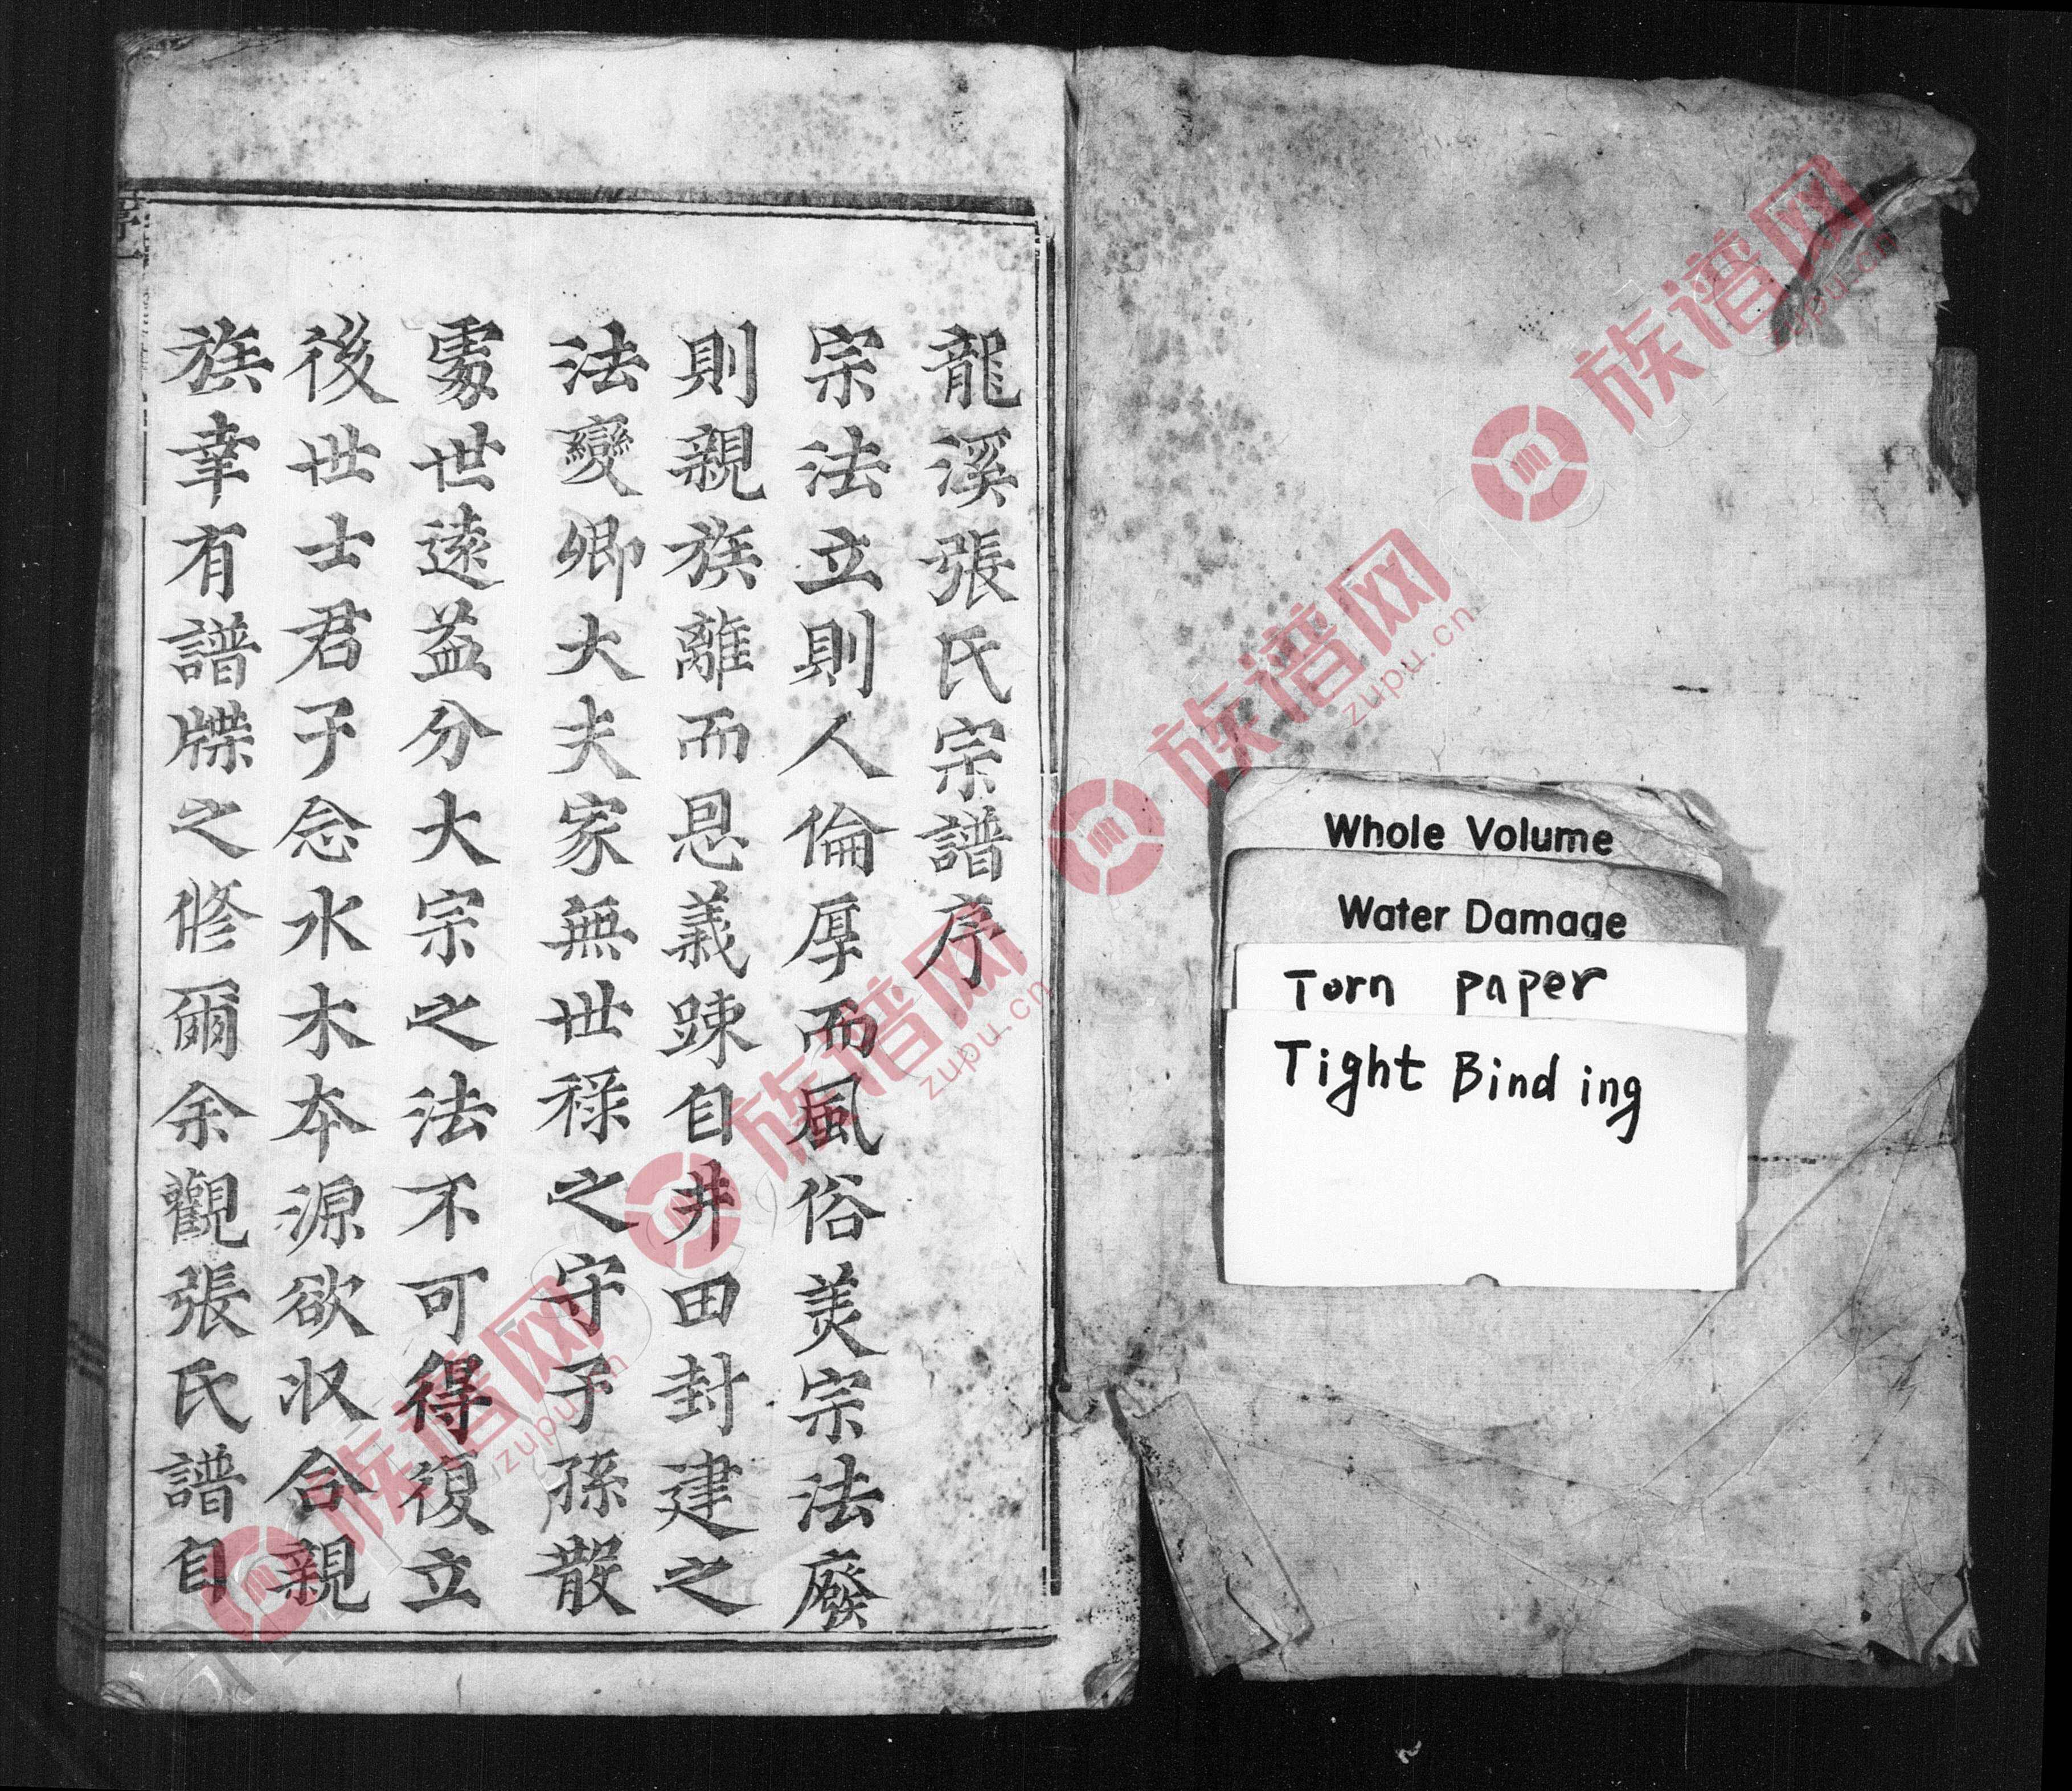 龍溪張氏宗譜序
宗法立則人倫厚而風俗美宗法廢
則親族離而恩義踈自井田封建之
法變卿大夫家無世祿之守子孫散
處世逺益分大宗之法不可得復立
後世士君子念水木本源欲收合親
族幸有譜牒之修爾余觀張氏譜自
Whole Volume
Water Damage
Torn paper
Tight Binding
族谱网
zupu.cn
族谱网
zupu.cn
族谱网
zupu.cn
族谱网
zupu.cn